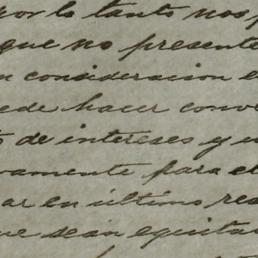 por lo tanto nos
que no presente
consideracion e
ede hacer conve
de intereses y u
vamente para el
ar en último res
ue sean equita